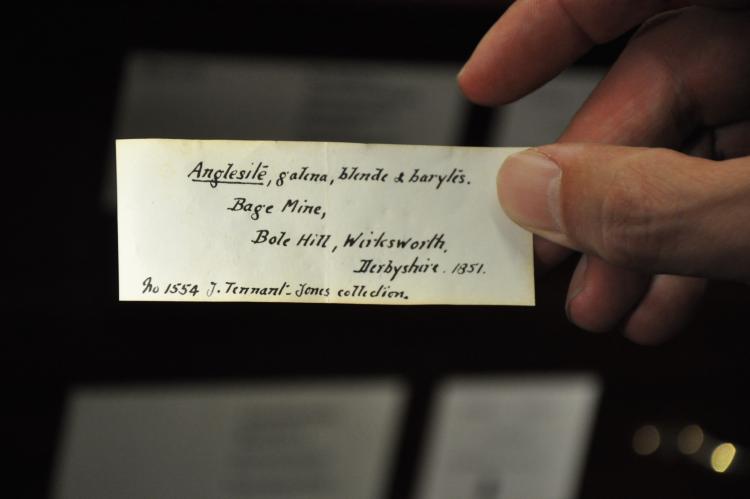 Anglesite, galena, blende & barytes.
Bage Mine,
Bole Hill, Wirksworth,
Derbyshire. 1851.
No 1554 J. Tennant-Jones collection.